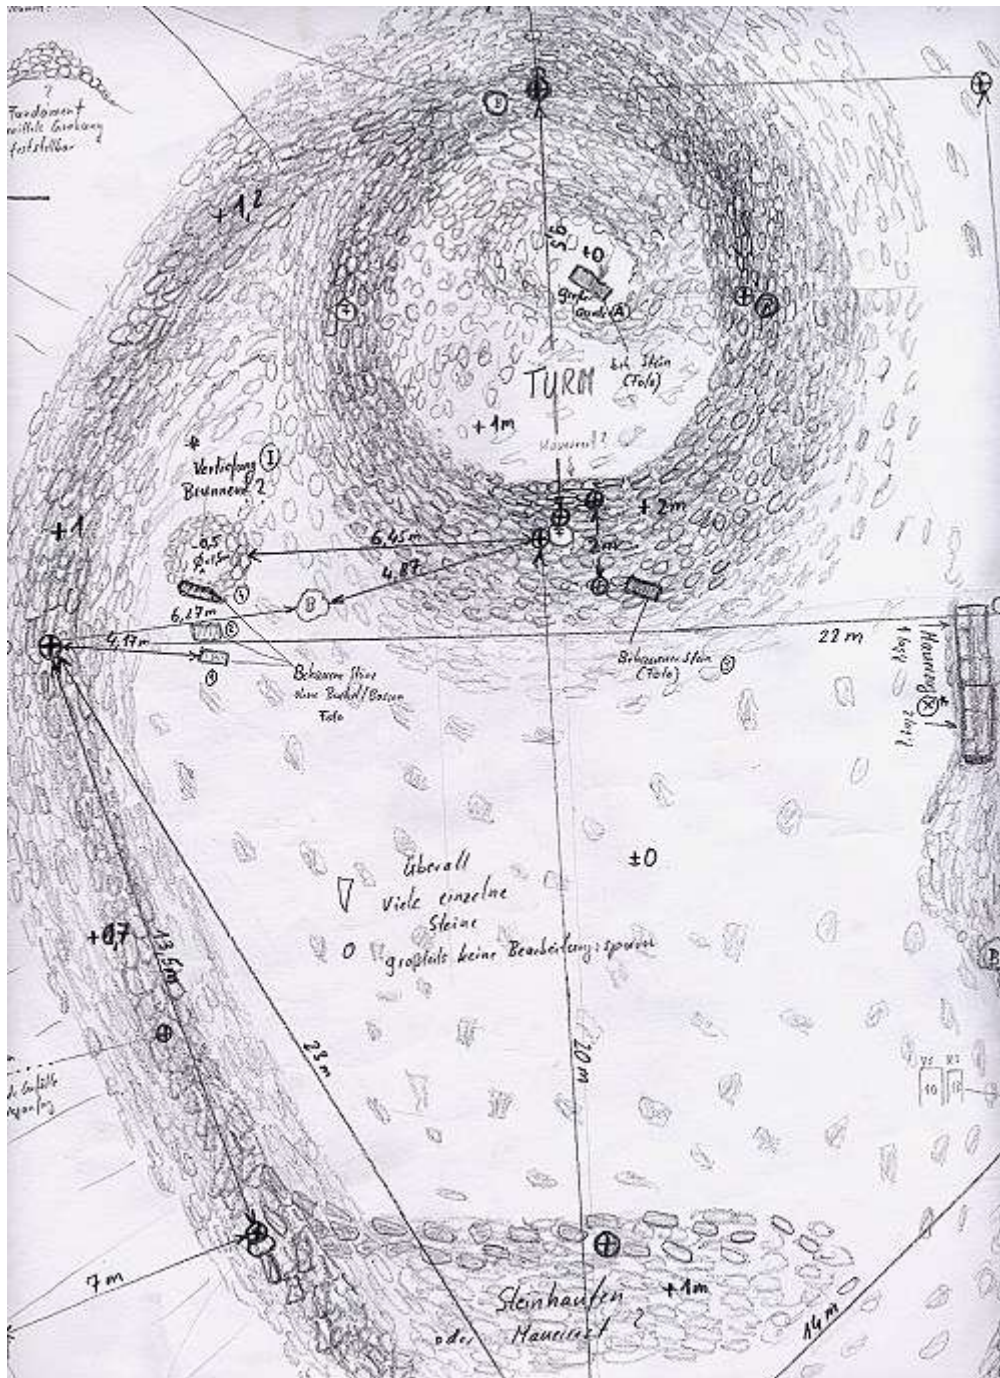 ?
Fundament
mittels Grabung
feststellbar
+1,2
B
9,5
±0
Großer
Quader (A)
beh. Stein
(Foto)
TURM
+1m
Mauerrest?
*
Vertiefung I
Brunnen ?
+2m
+1
-0,5
6,45 m
2m
4,87
B
6,27m
4,17m
22 m
Behauene Steine
ohne Buckel/Bossen
Foto
Behauener Stein
(Foto)
Mauerzug X *
±0
Überall
Viele einzelne
Steine
großteils keine Bearbeitungsspuren
+0,7
13,5m
B
23 m
20 m
10
12
7 m
Steinhaufen
+1m
oder Mauerrest ?
14 m